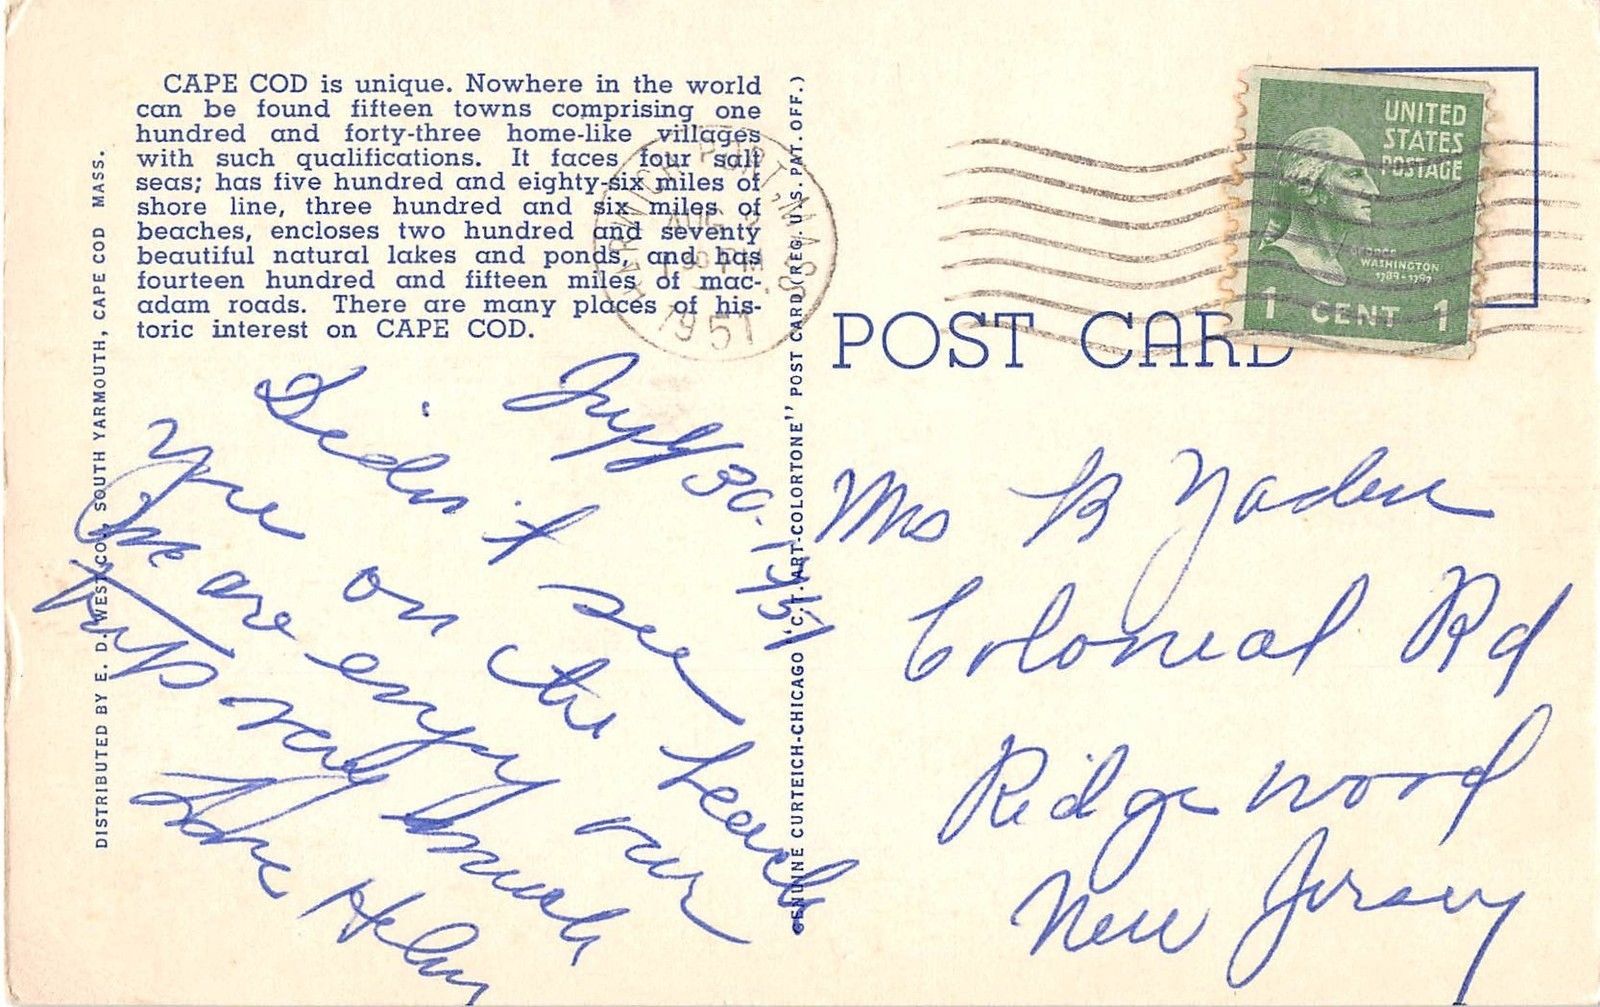 CAPE COD is unique. Nowhere in the world
can be found fifteen towns comprising one
hundred and forty-three home-like villages
with such qualifications. It faces four salt
seas; has five hundred and eighty-six miles of
shore line, three hundred and six miles of
beaches, encloses two hundred and seventy
beautiful natural lakes and ponds, and has
fourteen hundred and fifteen miles of mac-
adam roads. There are many places of his-
toric interest on CAPE COD.
DISTRIBUTED BY E. D. WEST CO., SOUTH YARMOUTH, CAPE COD MASS.
GENUINE CURTEICH-CHICAGO "C.T. ART-COLORTONE" POST CARD (REG. U.S. PAT. OFF.)
HARWICH PORT, MASS.
AUG 2
PM
1951
UNITED
STATES
POSTAGE
GEORGE
WASHINGTON
1789-1797
1 CENT 1
POST CARD
July 30-1951
Didn't see
you on the beach
We are enjoy our
trip very much
Love Helen
Mrs B Yaden
Colonial Rd
Ridgewood
New Jersey